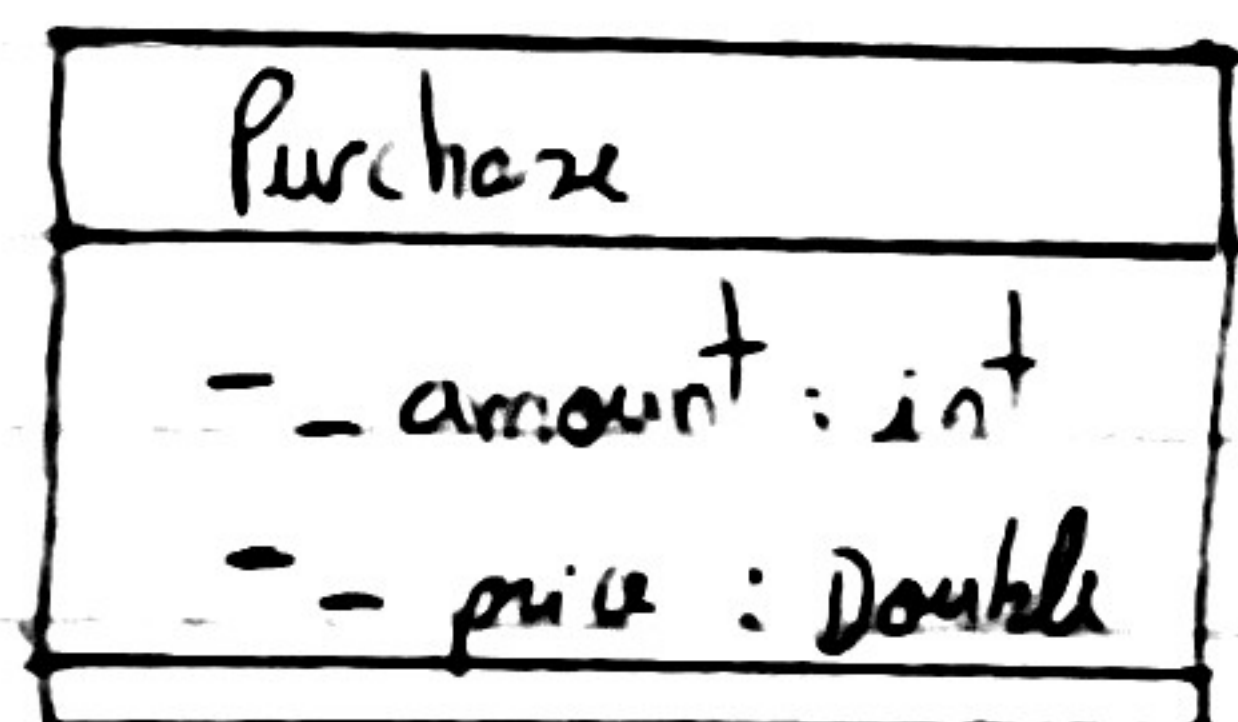 Purchase
- _ amount : int
- _ price : Double